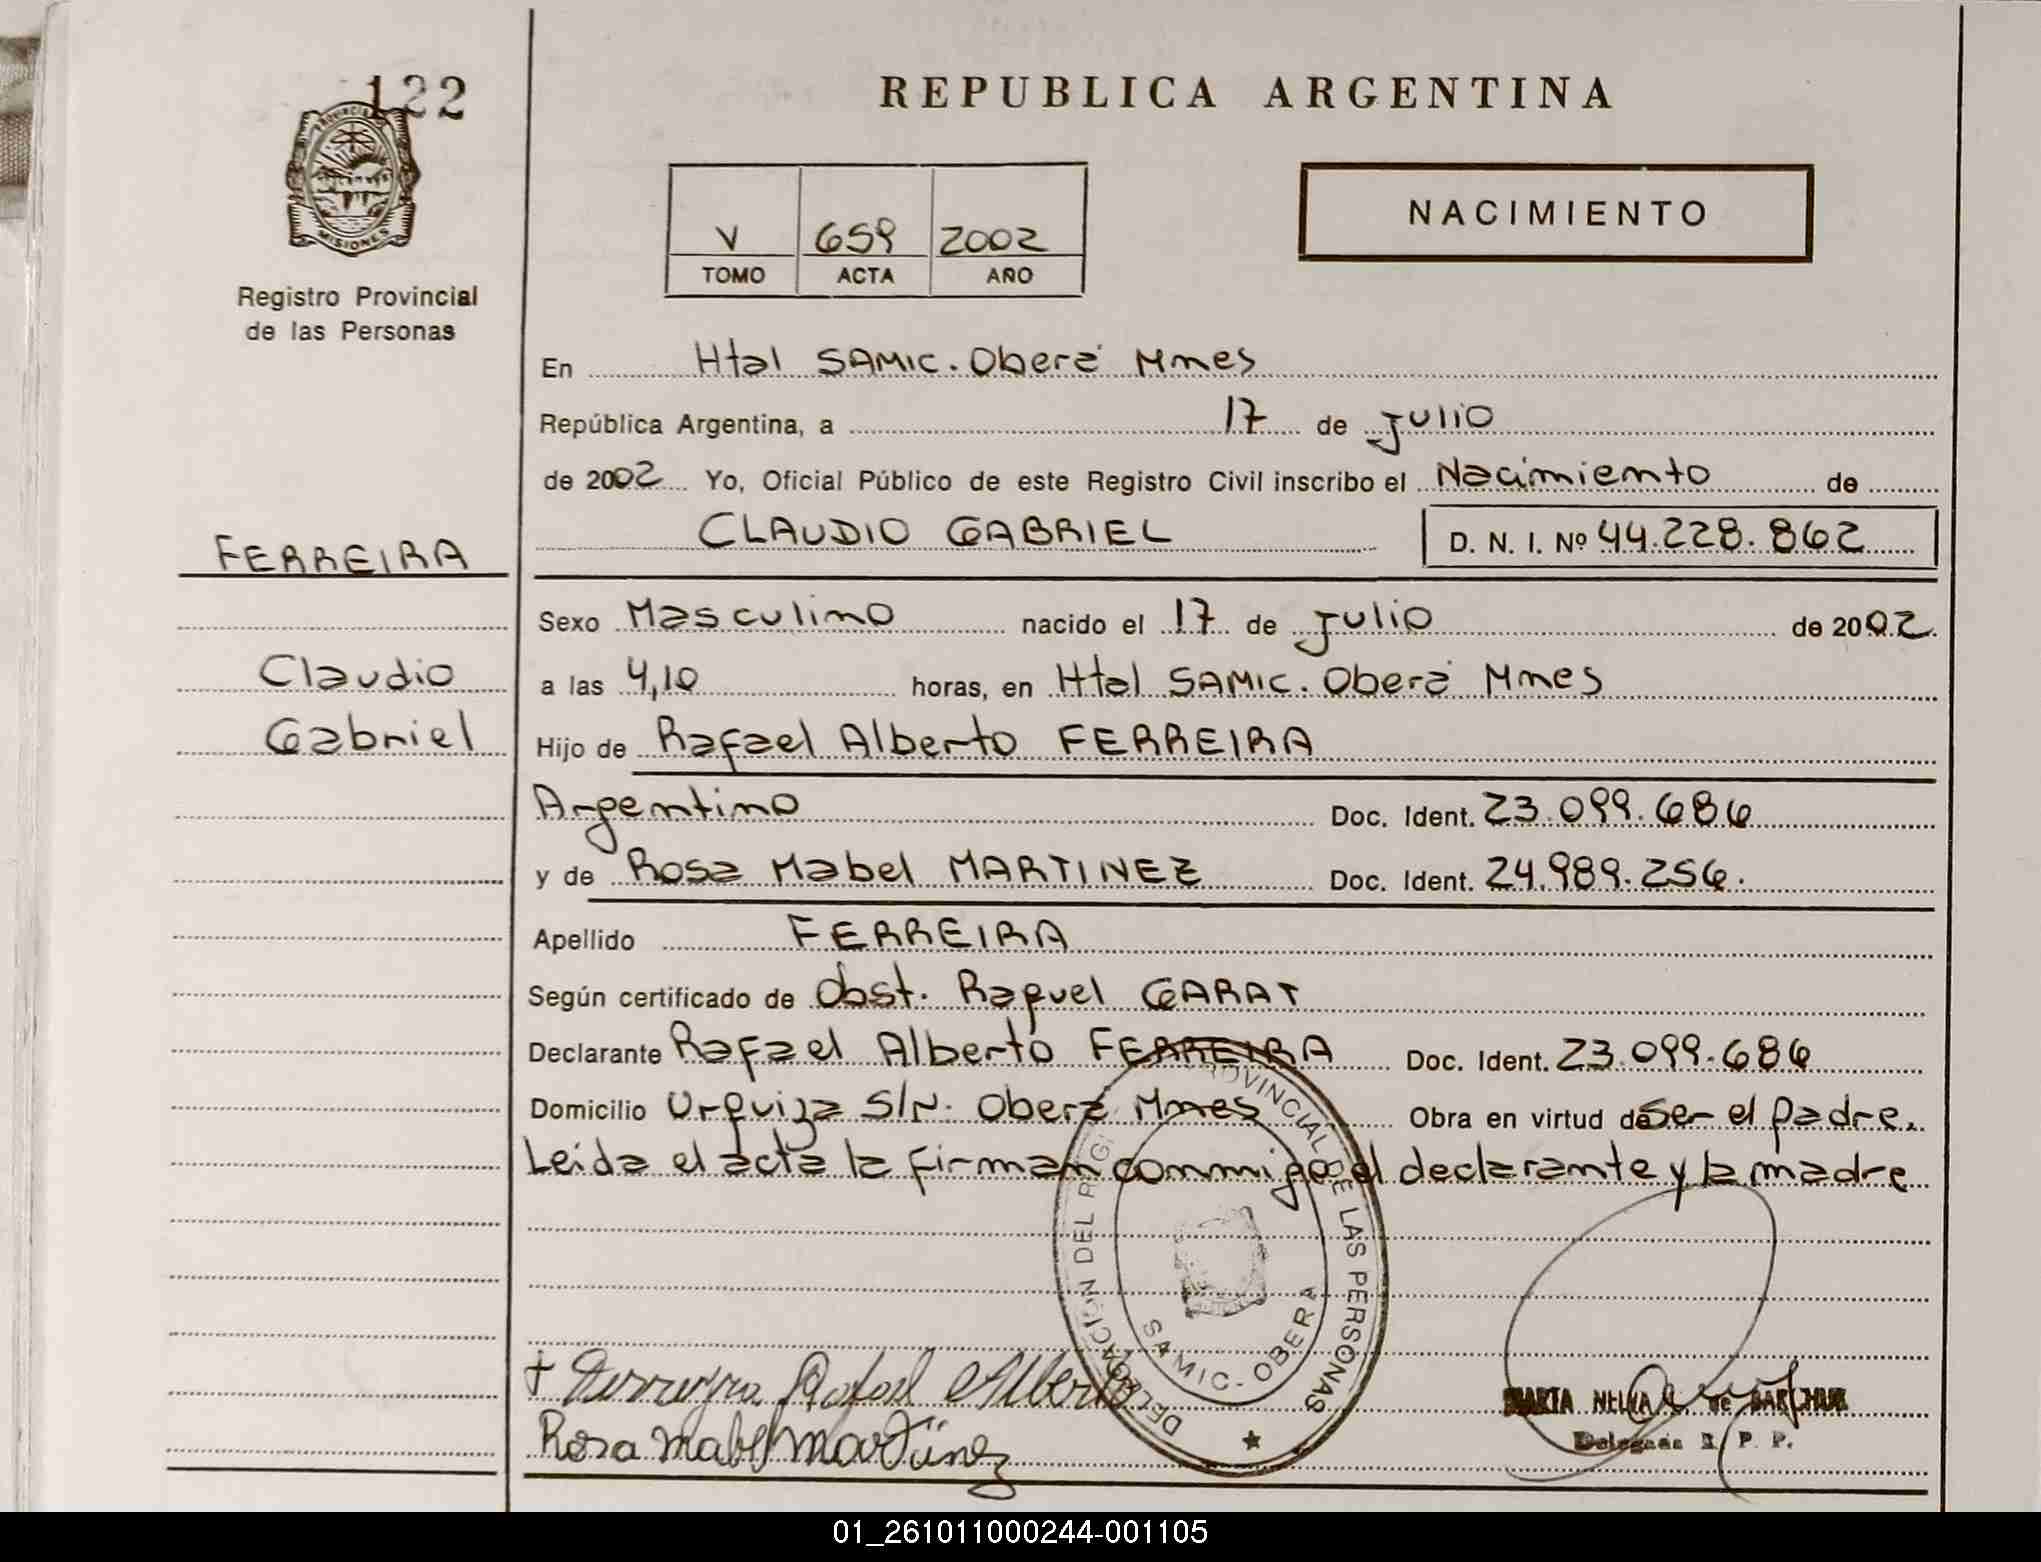 122
REPUBLICA ARGENTINA
PROVINCIA
MISIONES
Registro Provincial
de las Personas
V 659 2002
TOMO ACTA AÑO
NACIMIENTO
En Htal SAMIC. Oberá Mnes
República Argentina, a 17 de Julio
de 2002 Yo, Oficial Público de este Registro Civil inscribo el Nacimiento de
CLAUDIO GABRIEL D. N. I. Nº 44.228.862
FERREIRA
Claudio
Gabriel
Sexo Masculino nacido el 17 de Julio de 2002.
a las 4,10 horas, en Htal SAMIC. Oberá Mnes
Hijo de Rafael Alberto FERREIRA
Argentino Doc. Ident. 23.099.686
y de Rosa Mabel MARTINEZ Doc. Ident. 24.989.256.
Apellido FERREIRA
Según certificado de Obst. Raquel GARAT
Declarante Rafael Alberto FERREIRA Doc. Ident. 23.099.686
Domicilio Urquiza S/N. Oberá Mnes Obra en virtud de ser el padre.
Leida el acta la firman conmigo el declarante y la madre
DELEGACION DEL REGI PROVINCIAL DE LAS PERSONAS
SAMIC.-OBERA
Ferreyra Rafael Alberto
Rosa Mabel Martinez
MARTA NELVA de
Delegada R. P. P.
01_261011000244-001105